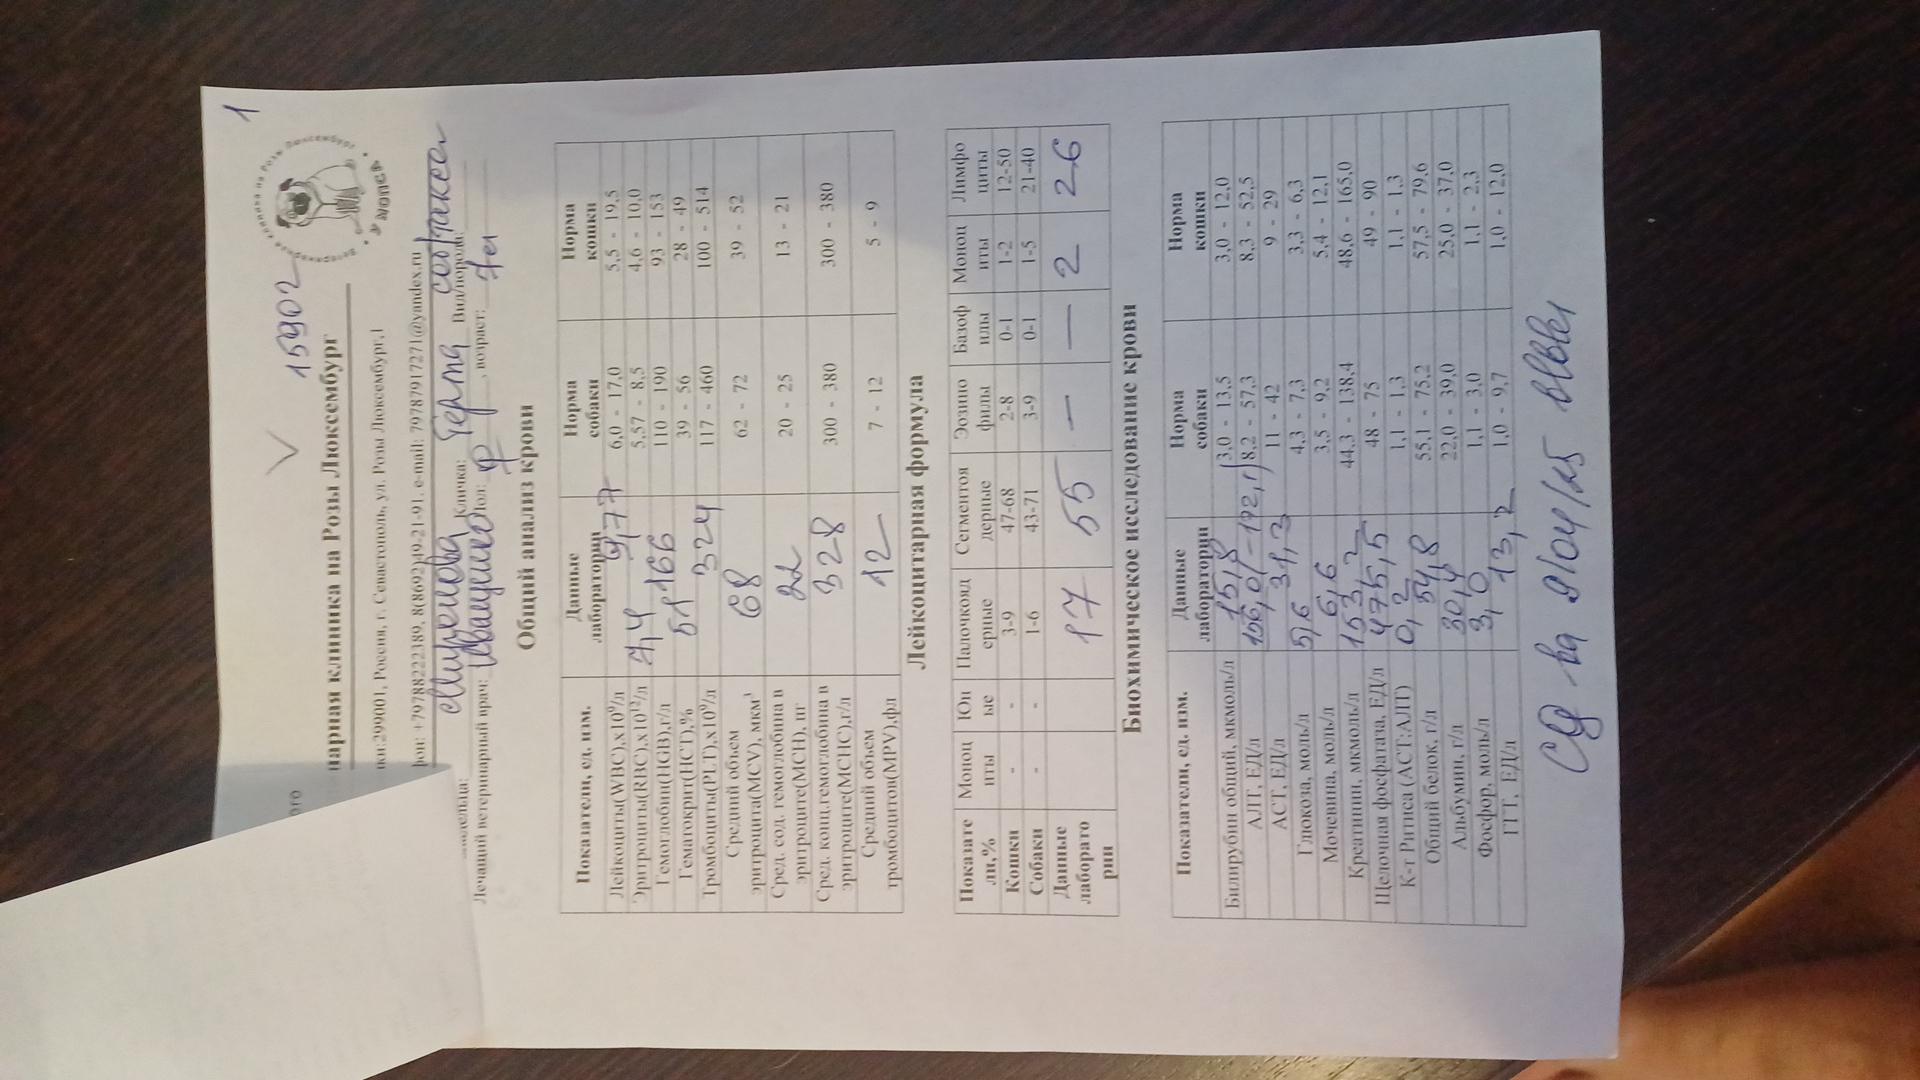 1
V 15902
нарная клиника на Розы Люксембург
Ветеринарная клиника на Розы Люксембург
У МОПСА
кс:29900 1, Россия, г. Севастополь, ул. Розы Люксембург,1
фон: +79788222389, 8(8692)49-21-91, e-mail: 79787917271@yandex.ru
Кличка: Герта Вид/порода: собака
Лечащий ветеринарный врач: Иващенко Пол: ♀, возраст: 7 лет
Общий анализ крови
Показатели, ед. изм. Данные лаборатории Норма собаки Норма кошки
Лейкоциты(WBC),х10⁹/л 9,77 6,0 - 17,0 5,5 - 19,5
Эритроциты(RBC),х10¹²/л 7,4 5,57 - 8,5 4,6 - 10,0
Гемоглобин(HGB),г/л 166 110 - 190 93 - 153
Гематокрит(HCT),% 51 39 - 56 28 - 49
Тромбоциты(PLT),х10⁹/л 324 117 - 460 100 - 514
Средний объем эритроцита(MCV), мкм³ 68 62 - 72 39 - 52
Сред. сод. гемоглобина в эритроците(MCH), пг 22 20 - 25 13 - 21
Сред. конц.гемоглобина в эритроците(MCHC),г/л 328 300 - 380 300 - 380
Средний объем тромбоцитов(MPV),фл 12 7 - 12 5 - 9
Лейкоцитарная формула
Показатели,% Моноциты Юные Палочкоядерные Сегментоядерные Эозинофилы Базофилы Моноциты Лимфоциты
Кошки - - 3-9 47-68 2-8 0-1 1-2 12-50
Собаки - - 1-6 43-71 3-9 0-1 1-5 21-40
Данные лаборатории 17 55 — — 2 26
Биохимическое исследование крови
Показатели, ед. изм. Данные лаборатории Норма собаки Норма кошки
Билирубин общий, мкмоль/л 15,8 3,0 - 13,5 3,0 - 12,0
АЛТ, ЕД/л 156,0/-192,1/ 8,2 - 57,3 8,3 - 52,5
АСТ, ЕД/л 31,3 11 - 42 9 - 29
Глюкоза, моль/л 5,6 4,3 - 7,3 3,3 - 6,3
Мочевина, моль/л 6,6 3,5 - 9,2 5,4 - 12,1
Креатинин, мкмоль/л 153,2 44,3 - 138,4 48,6 - 165,0
Щелочная фосфатаза, ЕД/л 475,5 48 - 75 49 - 90
К-т Ритиса (АСТ:АЛТ) 0,2 1,1 - 1,3 1,1 - 1,3
Общий белок, г/л 54,8 55,1 - 75,2 57,5 - 79,6
Альбумин, г/л 30,4 22,0 - 39,0 25,0 - 37,0
Фосфор, моль/л 3,0 1,1 - 3,0 1,1 - 2,3
ГГТ, ЕД/л 13,2 1,0 - 9,7 1,0 - 12,0